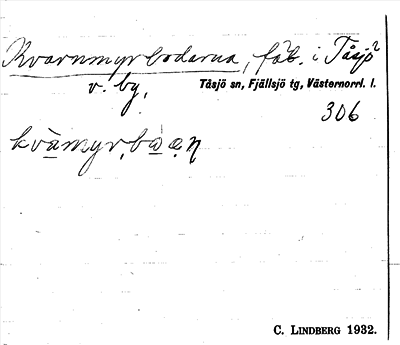 Kvarnmyrbodarna, fäb. i Tåsjö
v. by.
Tåsjö sn, Fjällsjö tg, Västernorrl. l.
306
C. LINDBERG 1932.